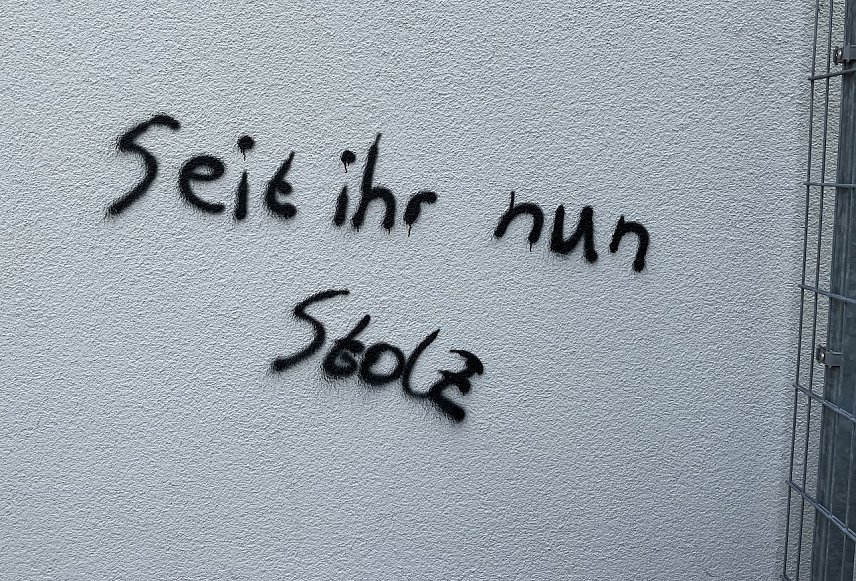 Seit ihr nun
Stolz